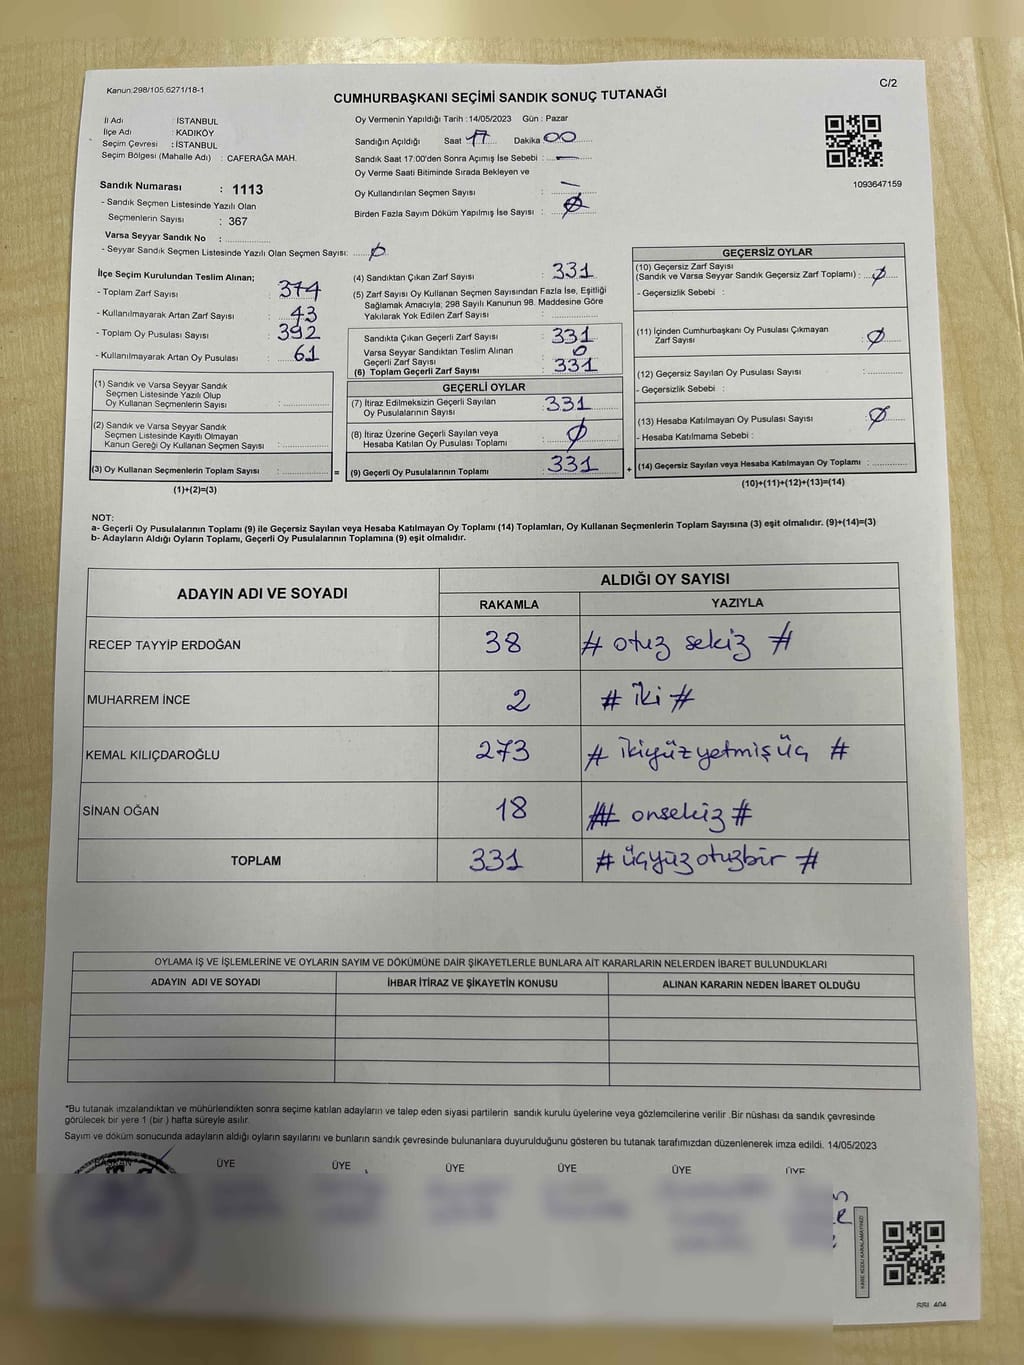 Kanun:298/105;6271/18-1
C/2
CUMHURBAŞKANI SEÇİMİ SANDIK SONUÇ TUTANAĞI
İl Adı : İSTANBUL
İlçe Adı : KADIKÖY
Seçim Çevresi : İSTANBUL
Seçim Bölgesi (Mahalle Adı) : CAFERAĞA MAH.
Sandık Numarası : 1113
- Sandık Seçmen Listesinde Yazılı Olan
Seçmenlerin Sayısı : 367
Varsa Seyyar Sandık No :
- Seyyar Sandık Seçmen Listesinde Yazılı Olan Seçmen Sayısı: Ø
Oy Vermenin Yapıldığı Tarih : 14/05/2023 Gün : Pazar
Sandığın Açıldığı Saat 17 Dakika 00
Sandık Saat 17:00'den Sonra Açımış İse Sebebi : —
Oy Verme Saati Bitiminde Sırada Bekleyen ve
Oy Kullandırılan Seçmen Sayısı : —
Birden Fazla Sayım Döküm Yapılmış İse Sayısı : Ø
1093647159
İlçe Seçim Kurulundan Teslim Alınan;
- Toplam Zarf Sayısı : 374
- Kullanılmayarak Artan Zarf Sayısı : 43
- Toplam Oy Pusulası Sayısı : 392
- Kullanılmayarak Artan Oy Pusulası : 61
(1) Sandık ve Varsa Seyyar Sandık
Seçmen Listesinde Yazılı Olup
Oy Kullanan Seçmenlerin Sayısı :
(2) Sandık ve Varsa Seyyar Sandık
Seçmen Listesinde Kayıtlı Olmayan
Kanun Gereği Oy Kullanan Seçmen Sayısı :
(3) Oy Kullanan Seçmenlerin Toplam Sayısı : =
(1)+(2)=(3)
(4) Sandıktan Çıkan Zarf Sayısı : 331
(5) Zarf Sayısı Oy Kullanan Seçmen Sayısından Fazla İse, Eşitliği
Sağlamak Amacıyla; 298 Sayılı Kanunun 98. Maddesine Göre
Yakılarak Yok Edilen Zarf Sayısı :
Sandıkta Çıkan Geçerli Zarf Sayısı : 331
Varsa Seyyar Sandıktan Teslim Alınan
Geçerli Zarf Sayısı : 0
(6) Toplam Geçerli Zarf Sayısı : 331
GEÇERLİ OYLAR
(7) İtiraz Edilmeksizin Geçerli Sayılan
Oy Pusulalarının Sayısı : 331
(8) İtiraz Üzerine Geçerli Sayılan veya
Hesaba Katılan Oy Pusulası Toplamı : Ø
(9) Geçerli Oy Pusulalarının Toplamı : 331 +
GEÇERSİZ OYLAR
(10) Geçersiz Zarf Sayısı
(Sandık ve Varsa Seyyar Sandık Geçersiz Zarf Toplamı) : Ø
- Geçersizlik Sebebi :
(11) İçinden Cumhurbaşkanı Oy Pusulası Çıkmayan
Zarf Sayısı : Ø
(12) Geçersiz Sayılan Oy Pusulası Sayısı :
- Geçersizlik Sebebi :
(13) Hesaba Katılmayan Oy Pusulası Sayısı : Ø
- Hesaba Katılmama Sebebi :
(14) Geçersiz Sayılan veya Hesaba Katılmayan Oy Toplamı :
(10)+(11)+(12)+(13)=(14)
NOT:
a- Geçerli Oy Pusulalarının Toplamı (9) ile Geçersiz Sayılan veya Hesaba Katılmayan Oy Toplamı (14) Toplamları, Oy Kullanan Seçmenlerin Toplam Sayısına (3) eşit olmalıdır. (9)+(14)=(3)
b- Adayların Aldığı Oyların Toplamı, Geçerli Oy Pusulalarının Toplamına (9) eşit olmalıdır.
ADAYIN ADI VE SOYADI ALDIĞI OY SAYISI
RAKAMLA YAZIYLA
RECEP TAYYİP ERDOĞAN 38 # otuz sekiz #
MUHARREM İNCE 2 # iki #
KEMAL KILIÇDAROĞLU 273 # ikiyüzyetmişüç #
SİNAN OĞAN 18 # onsekiz #
TOPLAM 331 # üçyüzotuzbir #
OYLAMA İŞ VE İŞLEMLERİNE VE OYLARIN SAYIM VE DÖKÜMÜNE DAİR ŞİKAYETLERLE BUNLARA AİT KARARLARIN NELERDEN İBARET BULUNDUKLARI
ADAYIN ADI VE SOYADI İHBAR İTİRAZ VE ŞİKAYETİN KONUSU ALINAN KARARIN NEDEN İBARET OLDUĞU
*Bu tutanak imzalandıktan ve mühürlendikten sonra seçime katılan adayların ve talep eden siyasi partilerin sandık kurulu üyelerine veya gözlemcilerine verilir .Bir nüshası da sandık çevresinde
görülecek bir yere 1 (bir ) hafta süreyle asılır.
Sayım ve döküm sonucunda adayların aldığı oyların sayılarını ve bunların sandık çevresinde bulunanlara duyurulduğunu gösteren bu tutanak tarafımızdan düzenlenerek imza edildi. 14/05/2023
BAŞKAN ÜYE ÜYE ÜYE ÜYE ÜYE ÜYE
KARE KODU KARALAMAYINIZ!